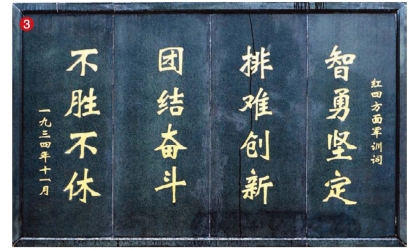 3
红四方面军训词
智勇坚定
排难创新
团结奋斗
不胜不休
一九三四年十一月